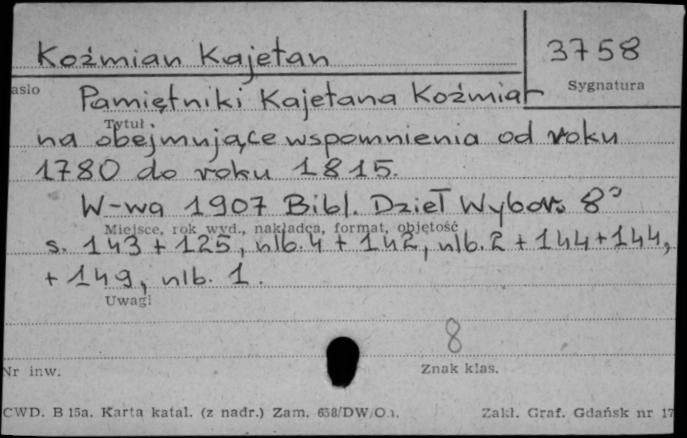 Koźmian Kajetan
3758
asło
Sygnatura
Pamiętniki Kajetana Koźmia-
Tytuł
na obejmujące wspomnienia od roku
1780 do roku 1815.
W-wa 1907 Bibl. Dzieł Wybor. 8°
Miejsce, rok wyd., nakładca, format, objętość
s. 143 + 125, nlb. 4 + 142, nlb. 2 + 144 + 144,
+ 149, nlb. 1.
Uwagi
8
Nr inw.
Znak klas.
CWD. B 15a. Karta katal. (z nadr.) Zam. 638/DW/O.
Zakł. Graf. Gdańsk nr 17